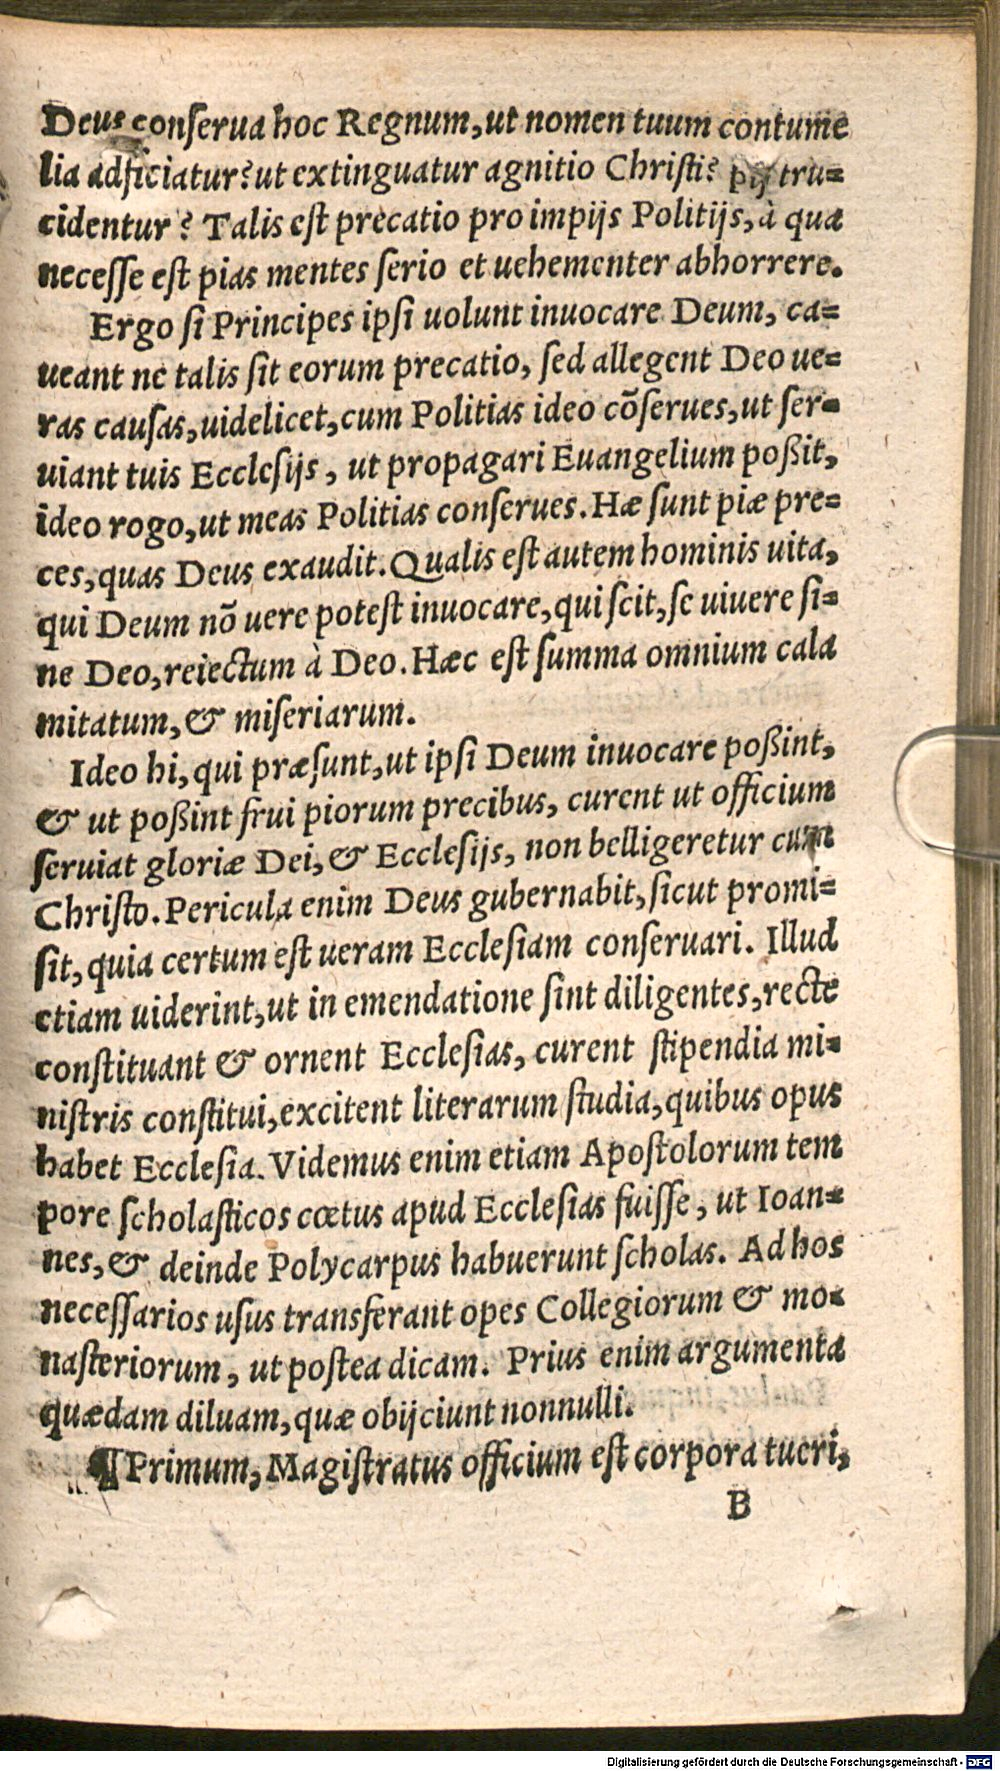 Deus conserua hoc Regnum, ut nomen tuum contume
lia adficiatur? ut extinguatur agnitio Christi? pij tru=
cidentur? Talis est precatio pro impijs Politijs, à qua
necesse est pias mentes serio et uehementer abhorrere.
Ergo si Principes ipsi uolunt inuocare Deum, ca=
ueant ne talis sit eorum precatio, sed allegent Deo ue=
ras causas, uidelicet, cum Politias ideo cõserues, ut ser=
uiant tuis Ecclesijs, ut propagari Euangelium poßit,
ideo rogo, ut meas Politias conserues. Hæ sunt piæ pre=
ces, quas Deus exaudit. Qualis est autem hominis uita,
qui Deum nõ uere potest inuocare, qui scit, se uiuere si=
ne Deo, reiectum à Deo. Hæc est summa omnium cala
mitatum, & miseriarum.
Ideo hi, qui præsunt, ut ipsi Deum inuocare poßint,
& ut poßint frui piorum precibus, curent ut officium
seruiat gloriæ Dei, & Ecclesijs, non belligeretur cum
Christo. Pericula enim Deus gubernabit, sicut promi=
sit, quia certum est ueram Ecclesiam conseruari. Illud
etiam uiderint, ut in emendatione sint diligentes, recte
constituant & ornent Ecclesias, curent stipendia mi=
nistris constitui, excitent literarum studia, quibus opus
habet Ecclesia. Videmus enim etiam Apostolorum tem
pore scholasticos cœtus apud Ecclesias fuisse, ut Ioan=
nes, & deinde Polycarpus habuerunt scholas. Ad hos
necessarios usus transferant opes Collegiorum & mo=
nasteriorum, ut postea dicam. Prius enim argumenta
quædam diluam, quæ obijciunt nonnulli.
¶ Primum, Magistratus officium est corpora tueri,
B
Digitalisierung gefördert durch die Deutsche Forschungsgemeinschaft - DFG